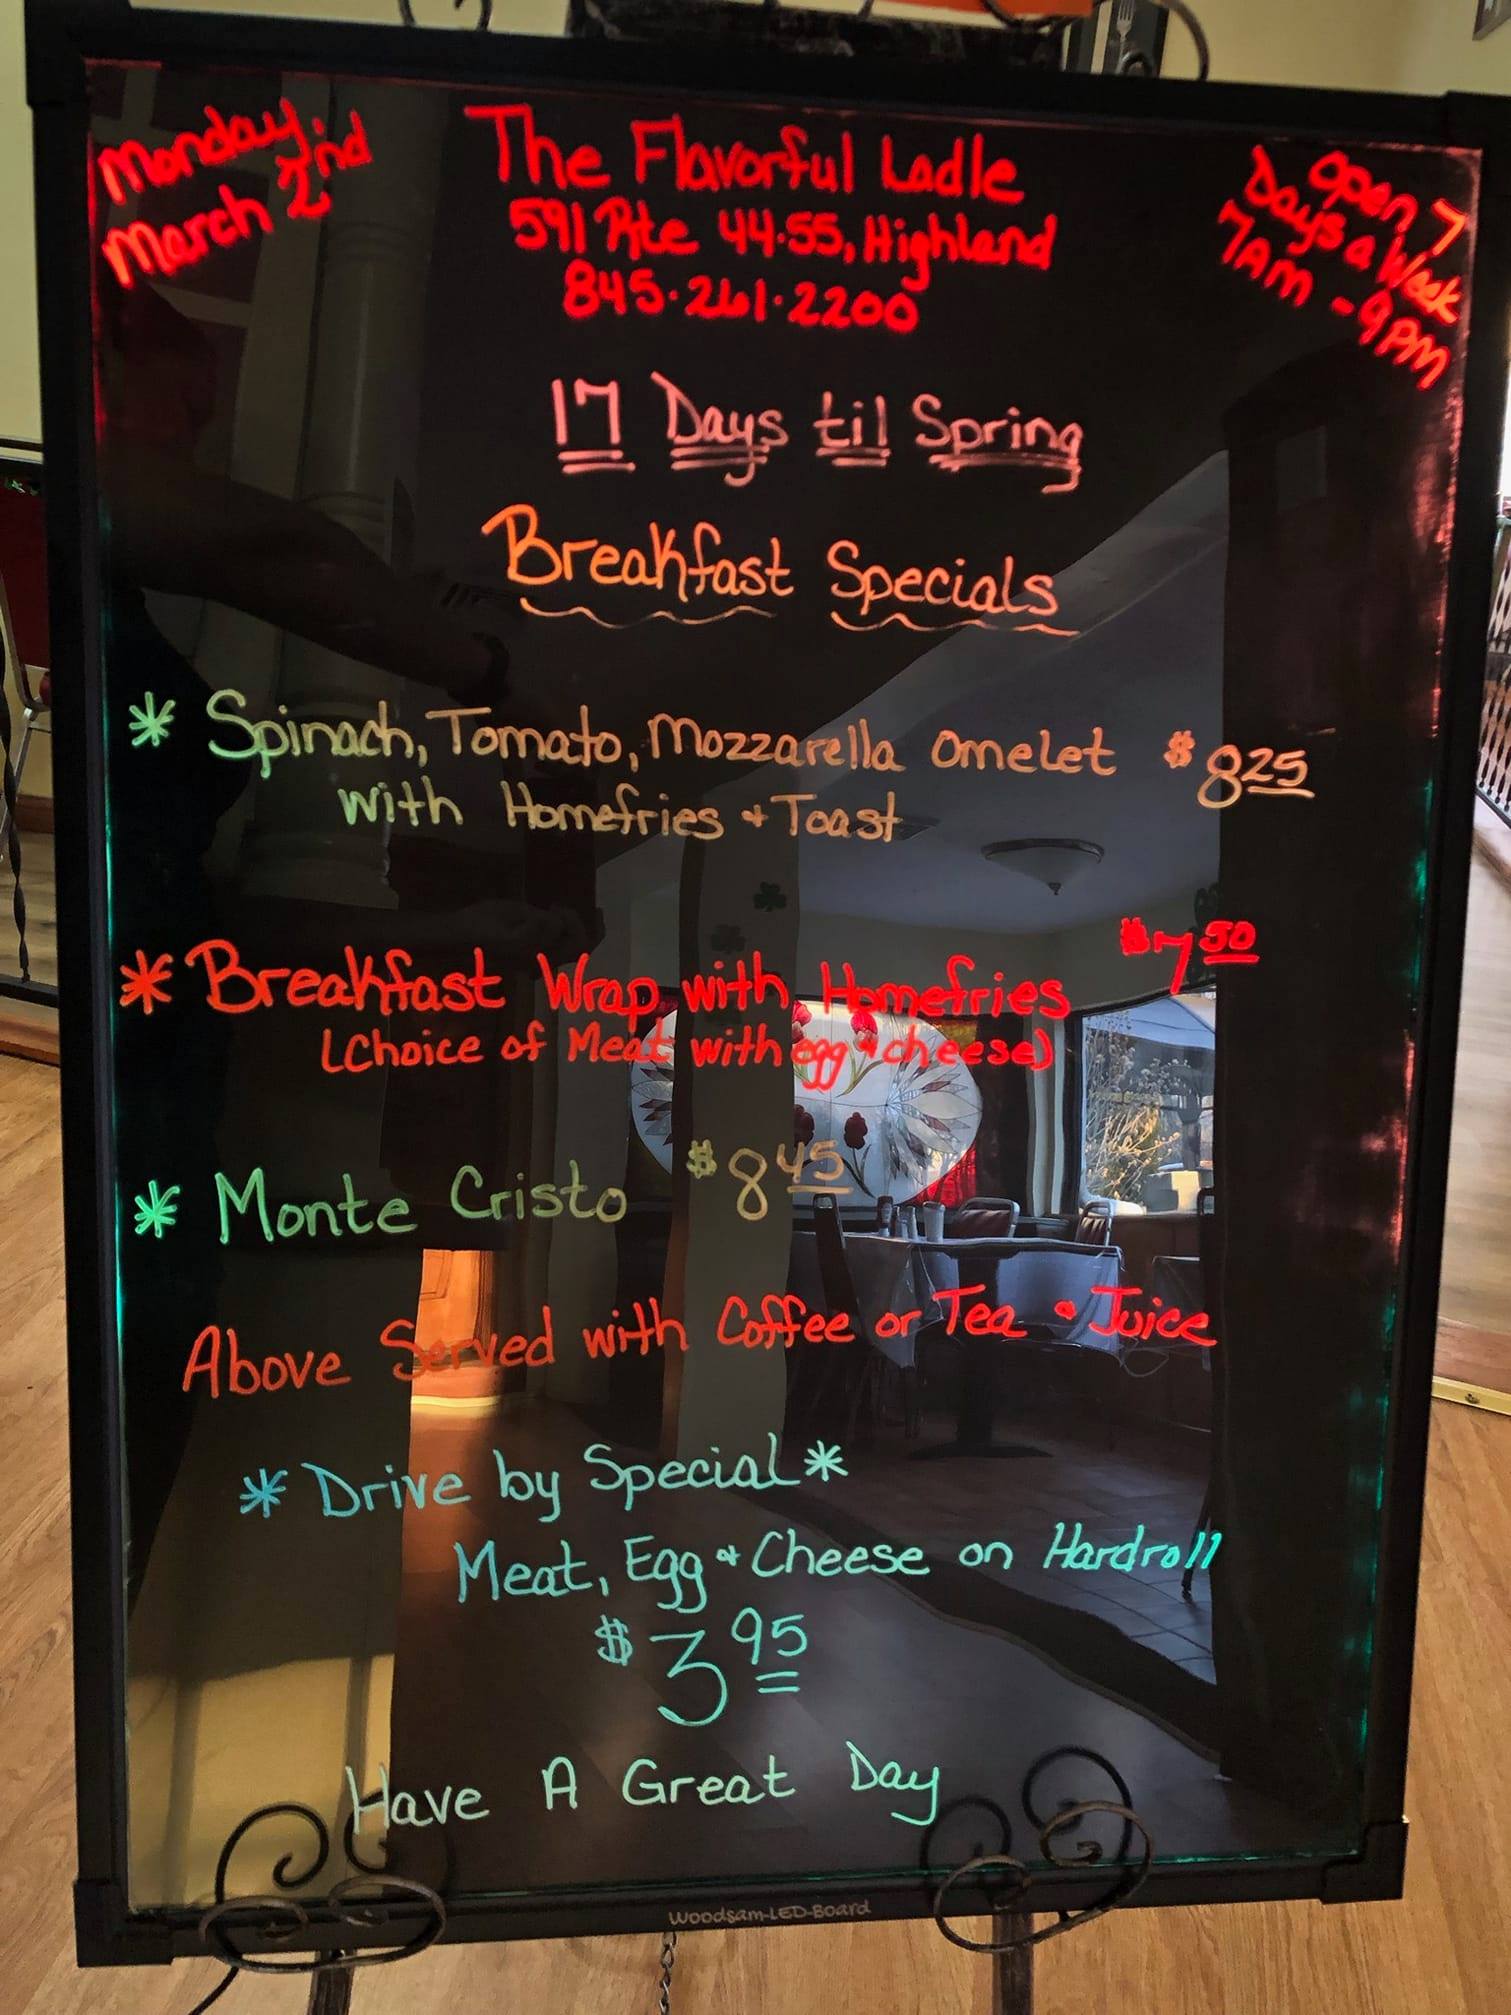 Monday, March 2nd
The Flavorful Ladle
591 Rte 44·55, Highland
845·261·2200
Open 7
Days a Week
7AM - 9PM
17 Days til Spring
Breakfast Specials
* Spinach, Tomato, Mozzarella Omelet $8 25
with Homefries + Toast
* Breakfast Wrap with Homefries $7 50
(Choice of Meat with egg + cheese)
* Monte Cristo $8 45
Above Served with Coffee or Tea + Juice
* Drive by Special *
Meat, Egg + Cheese on Hardroll
$3 95
Have A Great Day
Woodsam-LED-Board